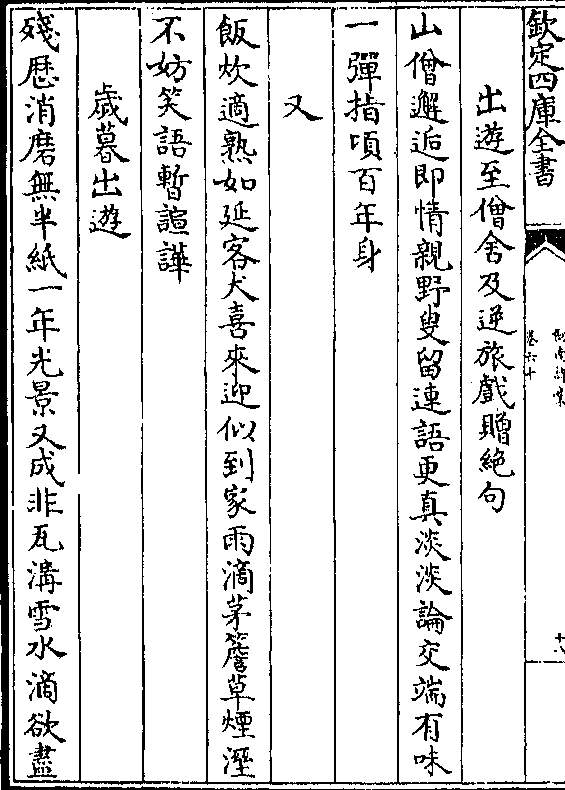 欽定四庫全書
劍南詩藁
卷六十
十八
出遊至僧舍及逆旅戲贈絶句
山僧邂逅即情親野叟留連語更真淡淡論交端有味
一彈指頃百年身
又
飯炊適熟如延客犬喜來迎似到家雨滴茅簷草煙溼
不妨笑語暫諠譁
歲暮出遊
殘厯消磨無半紙一年光景又成非瓦溝雪水滴欲盡